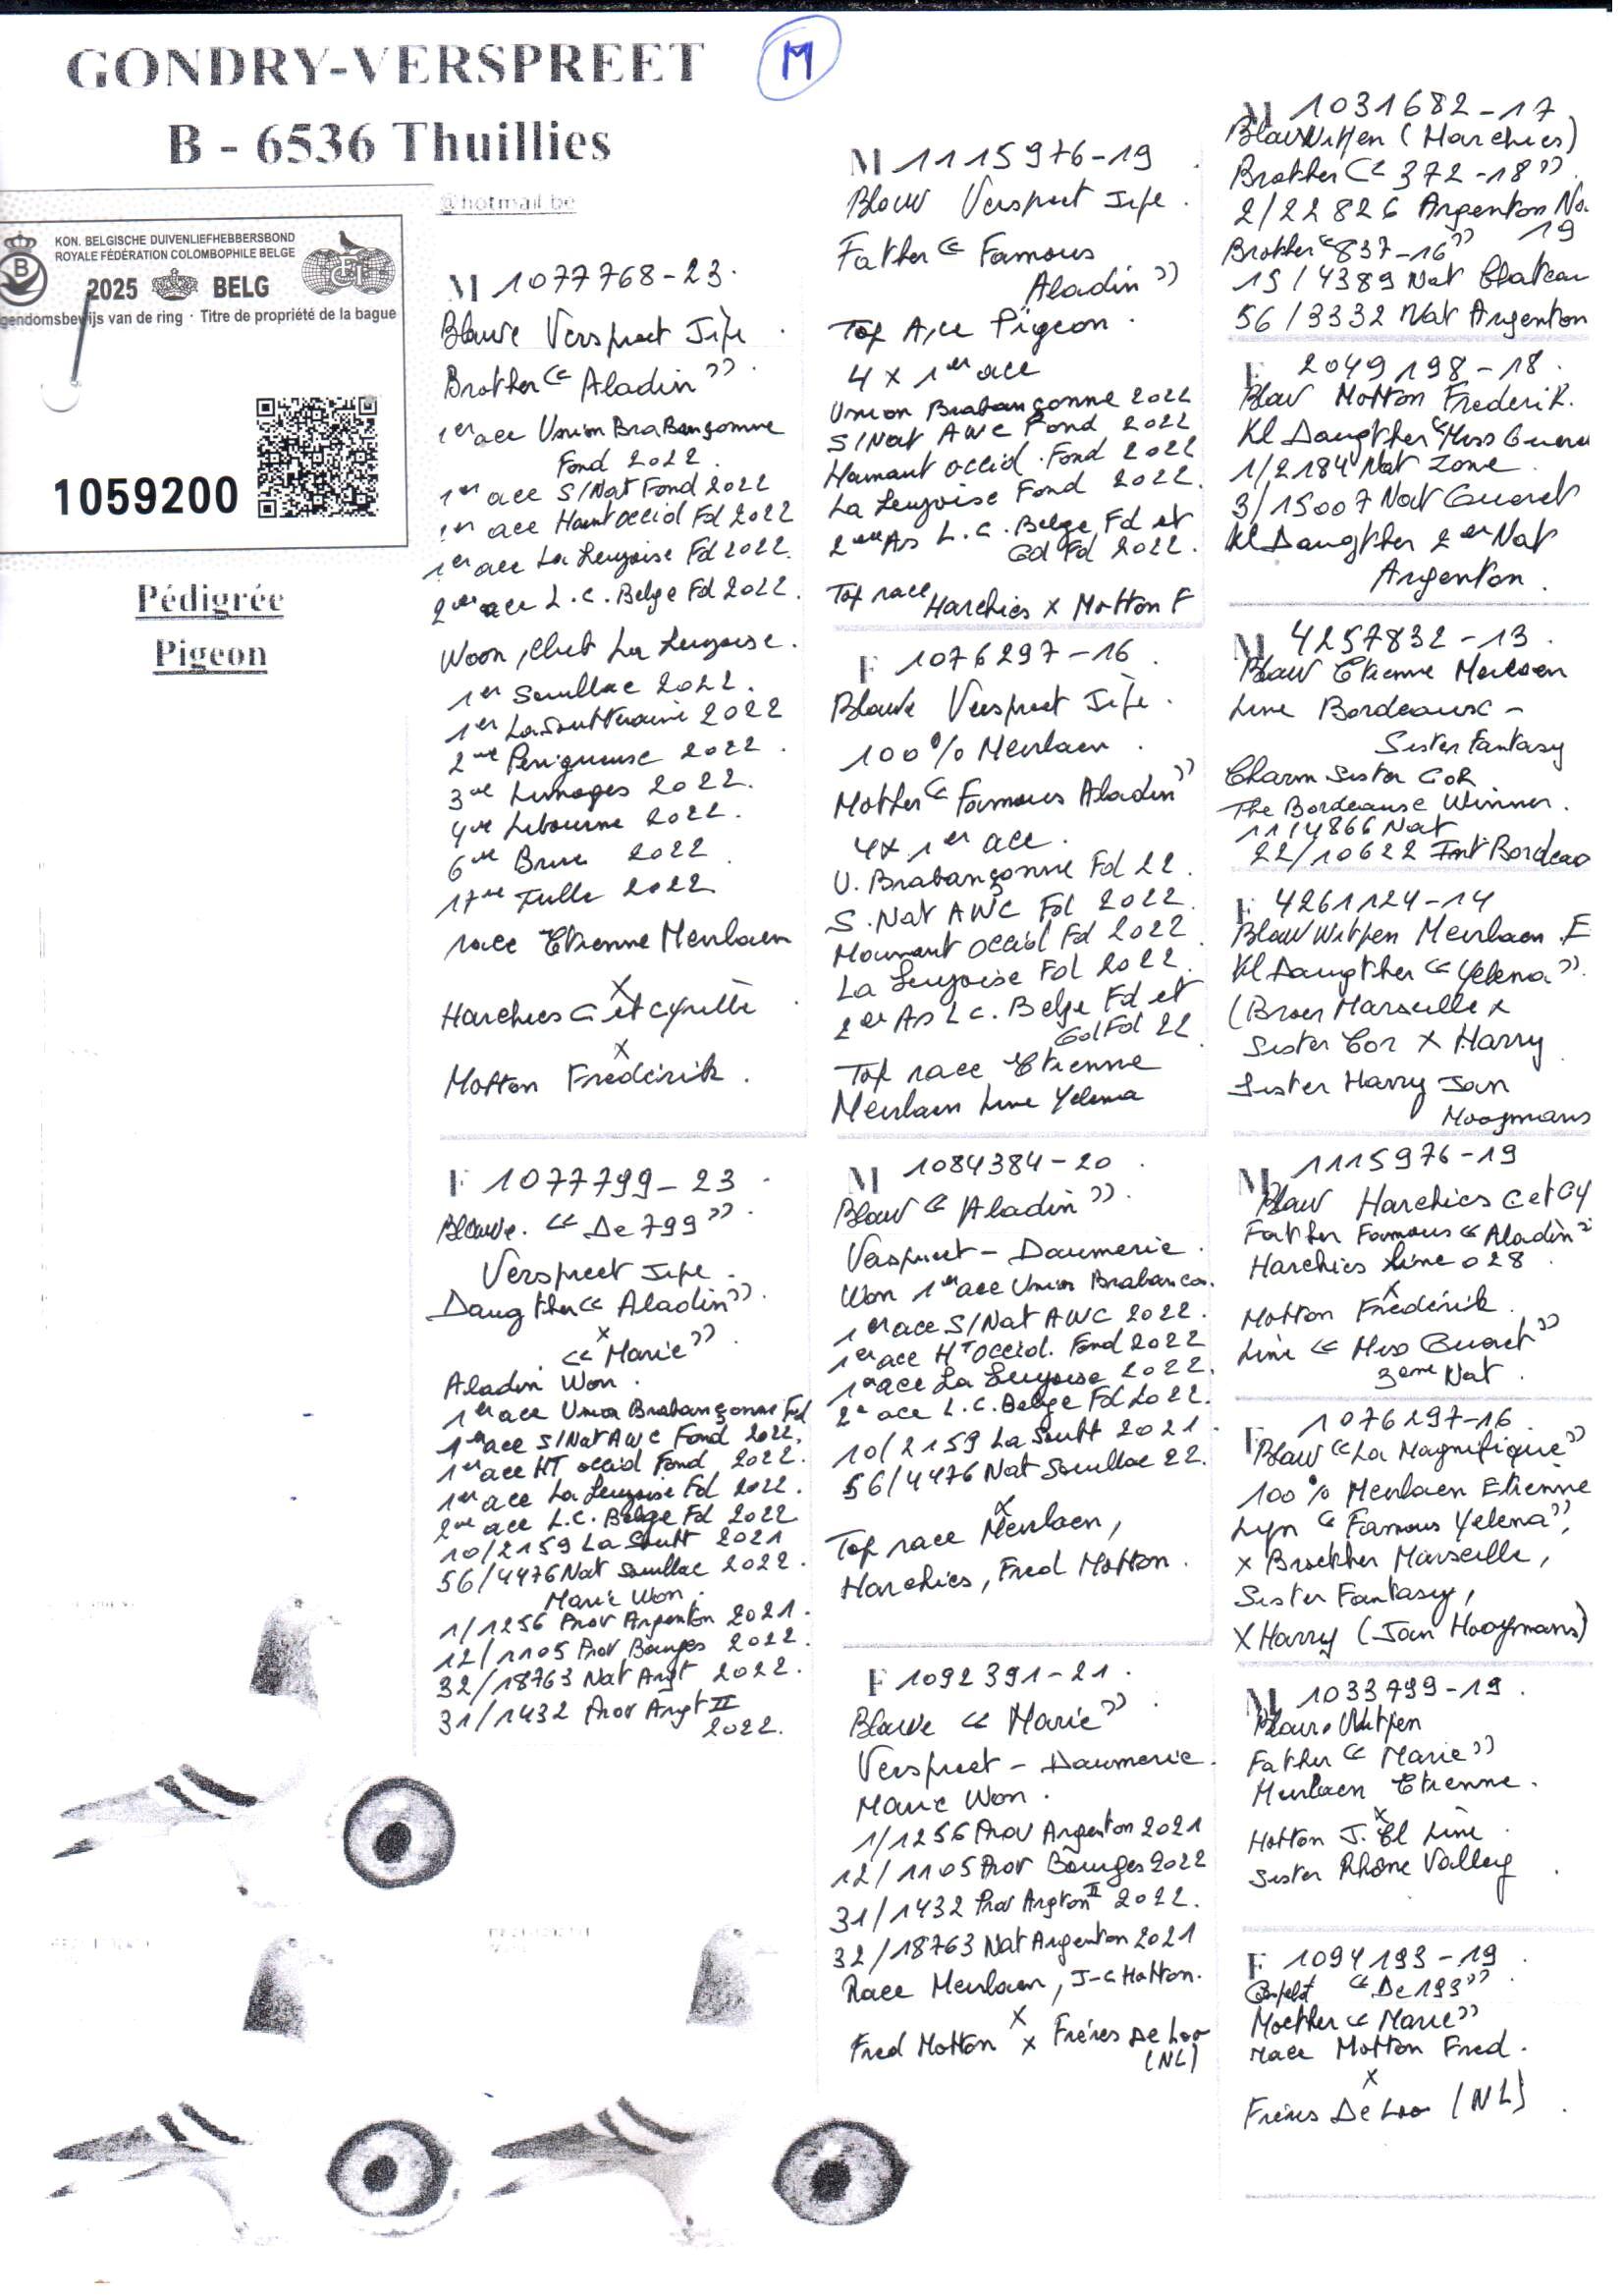 GONDRY-VERSPREET
B - 6536 Thuillies
M
@hotmail.be
KON. BELGISCHE DUIVENLIEFHEBBERSBOND
ROYALE FÉDÉRATION COLOMBOPHILE BELGE
2025 BELG
gendomsbewijs van de ring · Titre de propriété de la bague
1059200
Pédigrée
Pigeon
M 1077768-23.
Blauwe Verspreet Jipe
Brother « Aladin ».
1er ace Union Brabançonne
Fond 2022.
1er ace S/Nat Fond 2022
1er ace Haint Occid Fd 2022
1er ace La Leuzoise Fd 2022.
2ème ace L.C. Belge Fd 2022.
Woon, Club La Leuzoise.
1er Souillac 2022.
1er La Soutteraine 2022
2me Perigueux 2022.
3me Limoges 2022.
4me Libourne 2022.
6me Brive 2022.
17me Tulle 2022.
race Etienne Meirlaen
x
Harchies G et Cyrille
x
Motton Frédérik.
F 1077799-23
Blauwe. « De 799 ».
Verspreet Jipe.
Daugther « Aladin ».
x
« Marie ».
Aladin Won.
1er ace Union Brabançonne Fd
1er ace S/Nat AWC Fond 2022.
1er ace HT occid Fond 2022.
1er ace La Leuzoise Fd 2022.
2me ace L.C. Belge Fd 2022
10/2159 La Soutt 2021
56/4476 Nat Souillac 2022.
Marie Won.
1/1256 Prov Argenton 2021.
12/1105 Prov Bourges 2022.
32/18763 Nat Argt 2022.
31/1432 Prov Argt II
2022.
M 1115976-19
Blauw Verspreet Jipe.
Father « Famous
Aladin »
Top Ace Pigeon.
4 x 1er ace
Union Brabançonne 2022
S/Nat AWC Fond 2022
Hainaut Occid. Fond 2022
La Leuzoise Fond 2022.
2ème As L.C. Belge Fd et
Gd Fd 2022.
Top race Harchies x Motton F
F 1076297-16
Blauwe Verspreet Jipe.
100 % Meirlaen.
Mother « Famous Aladin »
4x 1er ace.
U. Brabançonne Fd 22.
S. Nat AWC Fd 2022.
Hainaut Occid Fd 2022
La Leuzoise Fd 2022.
2er As L.C. Belge Fd et
Gd Fd 22
Top race Etienne
Meirlaen Line Yelena
M 1084384-20
Blauw « Aladin ».
Verspreet - Daumerie.
Won 1er ace Union Brabancon.
1er ace S/Nat AWC 2022.
1er ace HT Occid. Fond 2022
1er ace La Leuzoise 2022.
2e ace L.C. Belge Fd 2022.
10/2159 La Soutt 2021.
56/4476 Nat Souillac 22.
x
Top race Meirlaen,
Harchies, Fred Motton.
F 1092391-21.
Blauwe « Marie ».
Verspreet - Daumerie.
Marie Won.
1/1256 Prov Argenton 2021
12/1105 Prov Bourges 2022
31/1432 Prov Argton II 2022.
32/18763 Nat Argenton 2021
Race Meirlaen, J-C Hotton.
x
Fred Motton x Frères De Loo
(NL)
M 1031682-17
Blauw Witpen (Harchies)
Brother « 372-18 ».
2/22826 Argenton Na.
19
Brother « 837-16 »
15/4389 Nat Chateau
56/3332 Nat Argenton
F 2049198-18.
Blauw Motton Frederik.
Kl Daugther « Miss Gueret
1/2184 Nat Zone
3/15007 Nat Gueret
Kl Daugther 2er Nat
Argenton.
M 4257832-13.
Blauw Etienne Meirlaen
Line Bordeaux -
Sister Fantasy
Charm Sister Cor
The Bordeaux Winner.
11/4866 Nat
22/10622 Int Bordeau
F 4261124-14
Blauw Witpen Meirlaen E
Kl Daugther « Yelena ».
(Broer Marseille x
Sister Cor x Harry
Sister Harry Jan
Hooymans
M 1115976-19
Blauw Harchies G et Cy
Father Famous « Aladin »
Harchies Line 028
x
Motton Frédérik
Line « Miss Gueret »
3eme Nat.
F 1076297-16
Blauw « La Magnifique »
100 % Meirlaen Etienne
Lyn « Famous Yelena »,
x Broekher Marseille,
Sister Fantasy,
x Harry (Jan Hooymans)
M 1033799-19.
Blauw Witpen
Father « Marie »
Meirlaen Etienne.
x
Hotton J. Cl Line
Sister Rhône Valley
F 1094193-19
« De 193 »
Moether « Marie »
race Motton Fred.
x
Frères De Loo (NL)